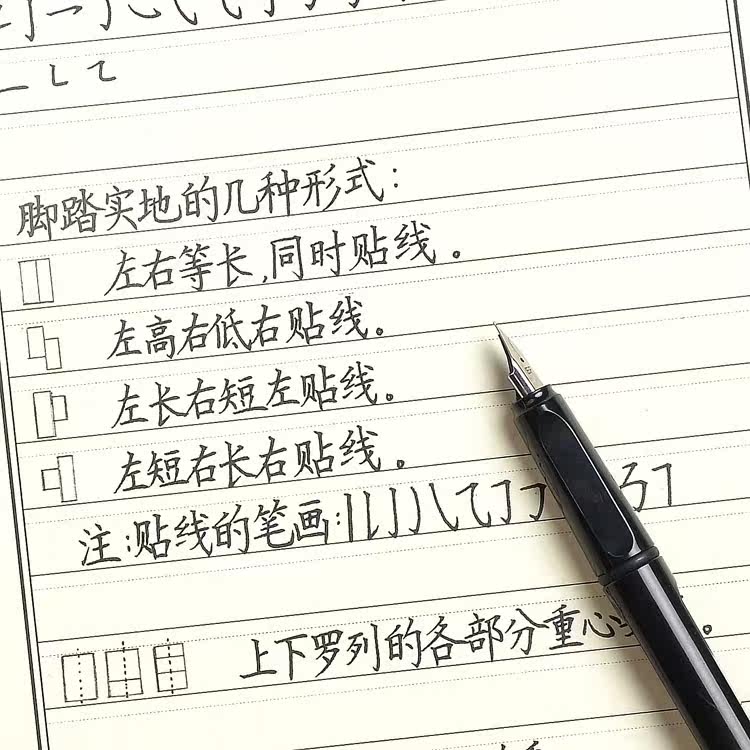 脚踏实地的几种形式：
左右等长,同时贴线。
左高右低右贴线。
左长右短左贴线。
左短右长右贴线。
注:贴线的笔画:
上下罗列的各部分重心